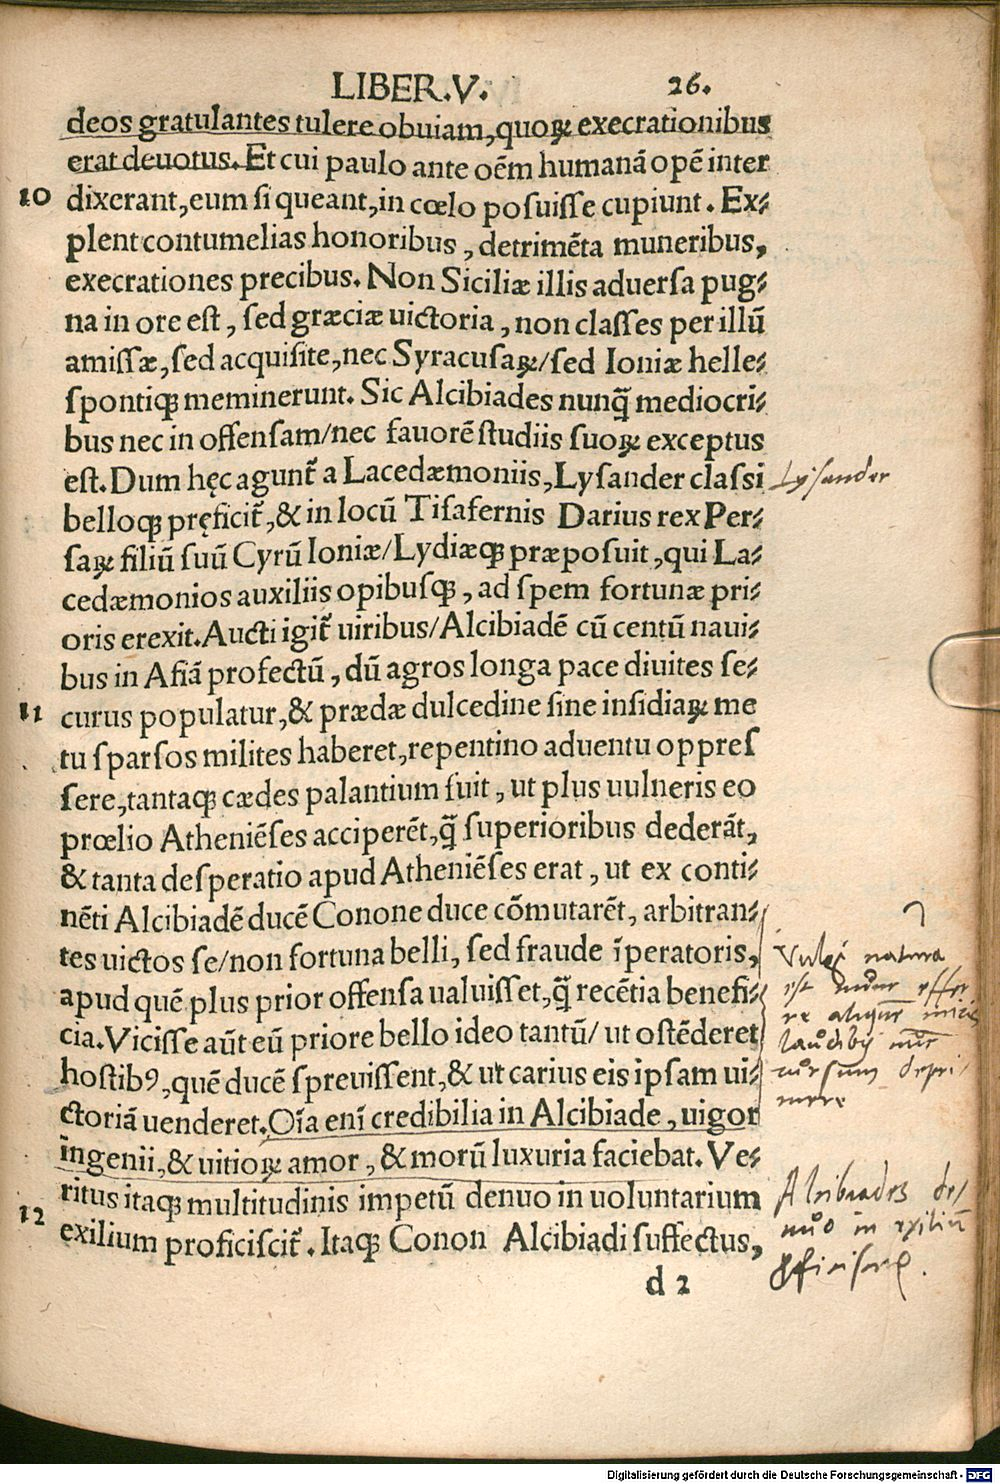 LIBER.V. 26.
deos gratulantes tulere obuiam,quoꝝ execrationibus
erat deuotus. Et cui paulo ante oēm humanā opē inter
10 dixerant,eum si queant,in cœlo posuisse cupiunt. Ex⸗
plent contumelias honoribus, detrimēta muneribus,
execrationes precibus. Non Siciliæ illis aduersa pug⸗
na in ore est, sed græciæ uictoria, non classes per illū
amissæ,sed acquisite,nec Syracusaꝝ/sed Ioniæ helle⸗
spontiqꝫ meminerunt. Sic Alcibiades nunq̄ mediocri⸗
bus nec in offensam/nec fauorē studiis suoꝝ exceptus
est. Dum hęc agunt̃ a Lacedæmoniis,Lysander classi
Lysander
belloqꝫ pręficit̃,& in locū Tisafernis Darius rex Per⸗
saꝝ filiū suū Cyrū Ioniæ/Lydiæqꝫ præposuit,qui La⸗
cedæmonios auxiliis opibusqꝫ, ad spem fortunæ pri⸗
oris erexit. Aucti igit̃ uiribus/Alcibiadē cū centū naui⸗
bus in Asiā profectū, dū agros longa pace diuites se⸗
11 curus populatur,& prædæ dulcedine sine insidiaꝝ me
tu sparsos milites haberet,repentino aduentu oppres
sere,tantaqꝫ cædes palantium fuit, ut plus uulneris eo
prœlio Atheniēses acciperēt,q̄ superioribus dederāt,
& tanta desperatio apud Atheniēses erat, ut ex conti⸗
nēti Alcibiadē ducē Conone duce cōmutarēt, arbitran⸗
tes uictos se/non fortuna belli, sed fraude īperatoris,
apud quē plus prior offensa ualuisset,q̄ recētia benefi⸗
cia. Vicisse aūt eū priore bello ideo tantū/ ut ostēderet
hostibꝰ,quē ducē spreuissent,& ut carius eis ipsam ui⸗
ctoriā uenderet. Oīa enī credibilia in Alcibiade, uigor
ingenii,& uitioꝝ amor, & morū luxuria faciebat. Ve⸗
ritus itaqꝫ multitudinis impetū denuo in uoluntarium
12 exilium proficiscit̃. Itaqꝫ Conon Alcibiadi suffectus,
Vulgi natura
est nunc effer
re
laudibꝰ nūc
rursum depri
mere
Alcibiades de/
nuo in exiliū
ꝓficiscit̃.
d 2
Digitalisierung gefördert durch die Deutsche Forschungsgemeinschaft - DFG